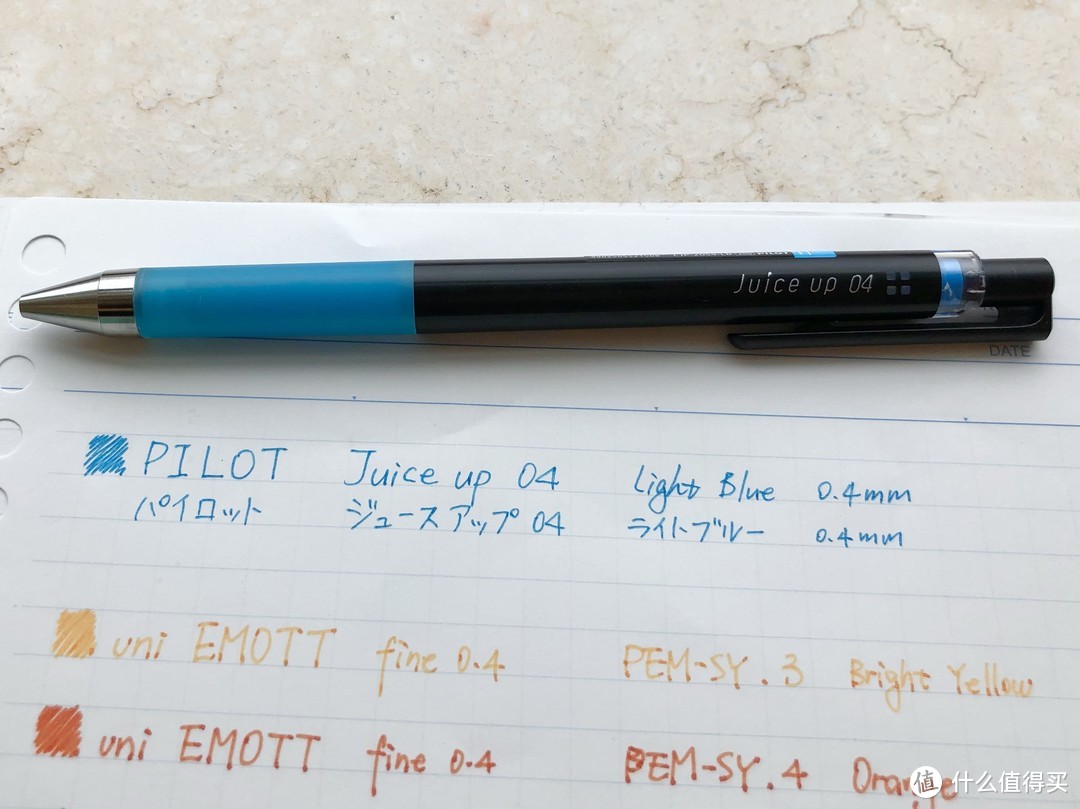 Juice up 04
DATE
PILOT Juice up 04 Light Blue 0.4mm
パイロット ジュースアップ 04 ライトブルー 0.4mm
uni EMOTT fine 0.4 PEM-SY.3 Bright Yellow
uni EMOTT fine 0.4 PEM-SY.4 Orange
值 什么值得买